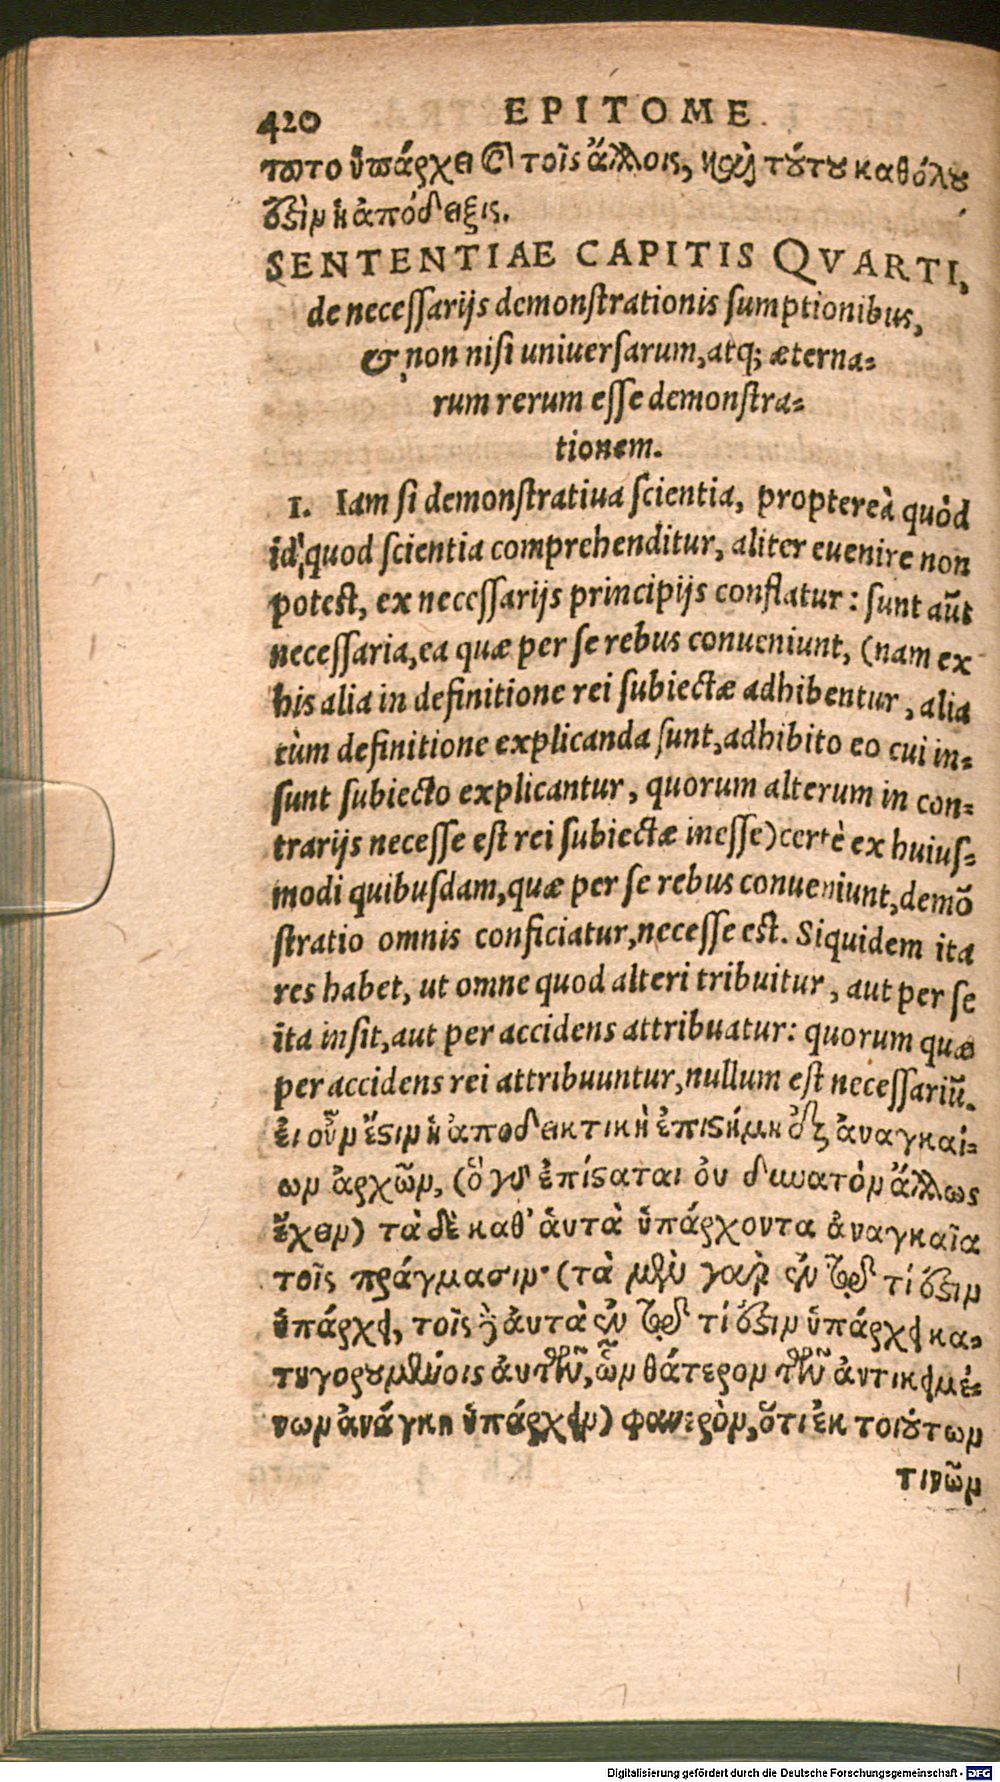 420 EPITOME.
τοῦτο ὑπάρχει ἐπὶ τοῖς ἄλλοις, καὶ τούτου καθόλου
ἐστὶν ἡ ἀπόδειξις.
SENTENTIAE CAPITIS QVARTI,
de necessarijs demonstrationis sumptionibus,
& non nisi uniuersarum, atq; æterna-
rum rerum esse demonstra-
tionem.
1. Iam si demonstratiua scientia, proptereà quòd
id, quod scientia comprehenditur, aliter euenire non
potest, ex necessarijs principijs conflatur: sunt aũt
necessaria, ea quæ per se rebus conueniunt, (nam ex
his alia in definitione rei subiectæ adhibentur, alia
tùm definitione explicanda sunt, adhibito eo cui in-
sunt subiecto explicantur, quorum alterum in con-
trarijs necesse est rei subiectæ inesse) certè ex huius-
modi quibusdam, quæ per se rebus conueniunt, demõ
stratio omnis conficiatur, necesse est. Siquidem ita
res habet, ut omne quod alteri tribuitur, aut per se
ita insit, aut per accidens attribuatur: quorum quæ
per accidens rei attribuuntur, nullum est necessariũ.
εἰ οὖν ἔστιν ἡ ἀποδεικτικὴ ἐπιστήμη ἐξ ἀναγκαί-
ων ἀρχῶν, (ὃ γὸ ἐπίσταται οὐ δυνατὸν ἄλλως
ἔχειν) τὰ δὲ καθ' ἁυτὰ ὑπάρχοντα ἀναγκαῖα
τοῖς πράγμασιν· (τὰ μὲν γαὰρ ἐν τῷ τί ἐστιν
ὑπάρχει, τοῖς δὲ ἀυτὰ ἐν τῷ τί ἐστιν ὑπάρχει κα-
τηγορουμένοις ἀυτῶν, ὧν θάτερον τῶν ἀντικειμέ-
νων ἀνάγκη ὑπάρχειν) φανερὸν, ὅτι ἐκ τοιούτων
τινῶν
Digitalisierung gefördert durch die Deutsche Forschungsgemeinschaft - DFG